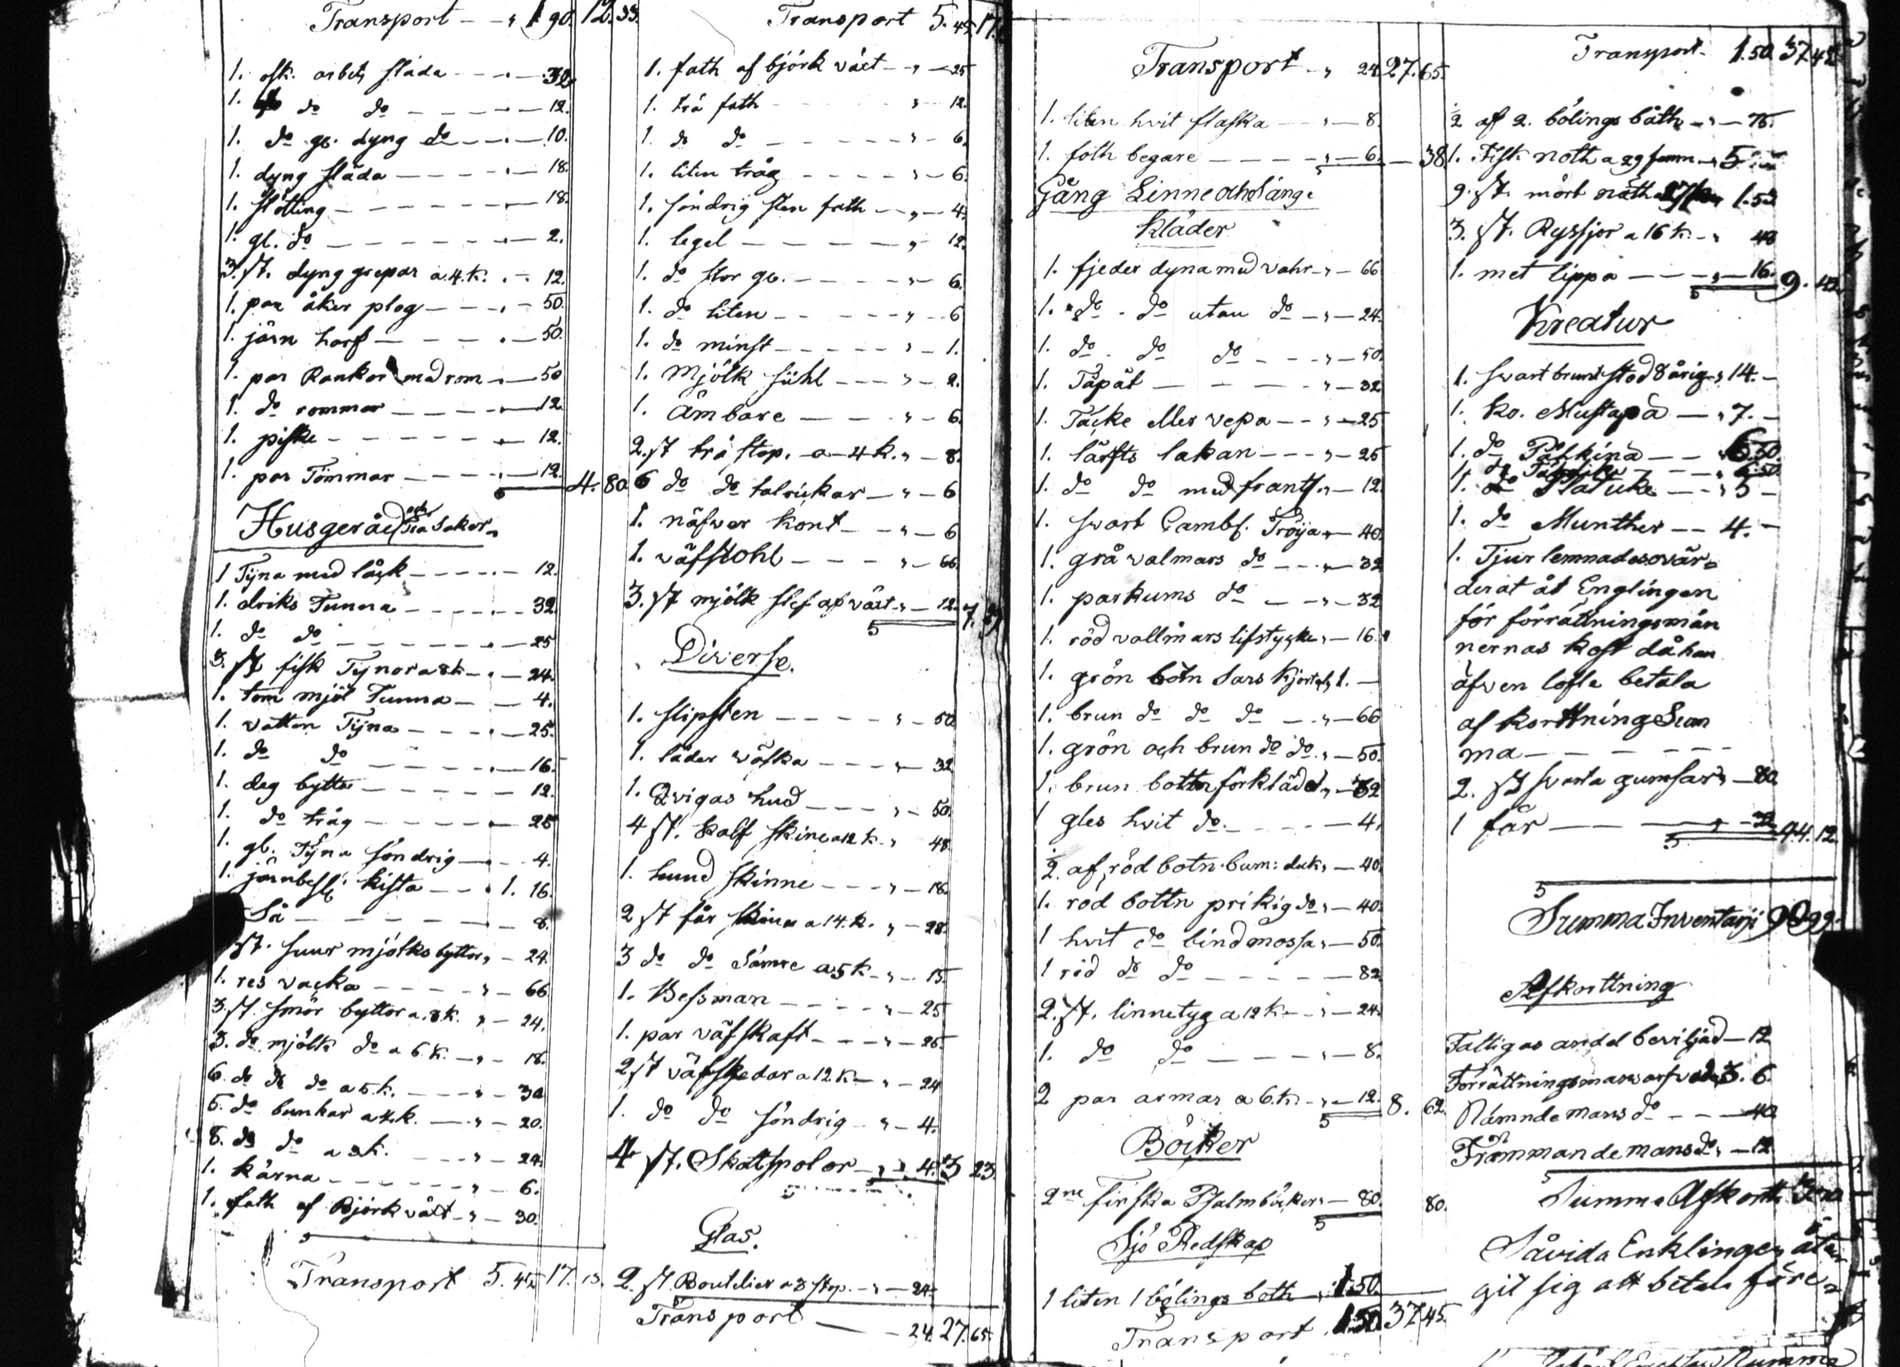 Transport - " 1 90. 12. 33.
1. osk. arbets släda - - - " - 32.
1. do do - - - - " - 12.
1. do gl. dyng do - - - " - 10.
1. dyng släda - - - - " - 18.
1. stötting - - - - - " - 18.
1. gl. do - - - - - " - 2.
3. st. dyng grepar a 4. k. " - 12.
1. par åker plog - - - " - 50.
1. järn harf - - - - " - 50.
1. par Rankor med rom " - 50
1. do rommar - - - - " - 12
1. piske - - - - - " - 12.
1. par Tömmar - - - " - 12 4. 80
Husgeråd och Träsaker
1 Tÿna med låck - - - - " - 12.
1. driks Tunna - - - - " - 32.
1. do do - - - - - " - 25
3. st fisk Tÿnor a 8 k - " - 24.
1. tom mjöl Tunna - - " - 4.
1. vatten Tÿna - - - - " - 25.
1. do do - - - - " - 16.
1. deg bytta - - - - " - 12.
1. do tråg - - - - " - 25
1. gl. Tÿna söndrig - " - 4.
1. järnbesl: kista - - " 1. 16.
Så - - - - - " - 8.
st. suur mjölks byttor " - 24.
1. res vacka - - - - " - 66
3. st. smör byttor a. 8 k. " - 24.
3. do mjölk do a 6. k. - " - 18.
6. do do do a 5 k. - - " - 30
5. do bunkar a 4 k. - " - 20.
8. do do a 3 k. - - " - 24.
1. kärna - - - - - " - 6.
1. fath af Björk växt - " - 30.
Transport 5. 45 17. 13.
Transport 5. 45 17.
1. fath af björk växt - " - 25
1. trä fath - - - - " - 12.
1. do do - - - - " - 6.
1. liten tråg - - - " - 6.
1. söndrig sten fath - " - 4.
1. legel - - - - " - 12.
1. do stor gl. - - - " - 6.
1. do liten - - - - " - 6
1. do minst - - - - " - 1.
1. Mjölk sihl - - - " - 2.
1. Ämbare - - - " - 6.
2. st trä stop. a 4 k. " - 8.
6 do do talrickar - " - 6
1. näfver kont - - " - 6
1. väfstohl - - - " - 66.
3. st mjölk slef af växt " - 12. 7.
Diverse.
1. slipsten - - - - " - 50.
1. läder väska - - - " - 32
1. Qvigas hud - - - " - 50.
4 st. kalf skinn a 12 k. " 48.
1. hund skinne - - - " - 18.
2 st får skinn a 14. k. " - 28.
3 do do sämre a 5 k - " - 15.
1. Bessman - - - - " - 25
1. par väfskaft - - - " - 25.
2 st väfskedar a 12 k - " - 24
1. do do söndrig - " - 4.
4 st. Skåtspolor - " - 4. 3 23.
Glas.
2. st Boutelier a 3 stop. - " - 24.
Transport - - 24. 27. 65.
Transport - " 24. 27. 65.
1. liten hvit flaska - - " - 8.
1. foth begare - - - - " - 6. - 38
Gång Linne och Sänge
Kläder
1. fjeder dyna med vahr - " - 66
1. do - do utan do - " - 24.
1. do do do - - " - 50.
1. Täpät - - - - " - 32
1. Täcke eller vepa - - " - 25
1. lärfts lakan - - - " - 25
1. do do med frants " - 12.
1. svart Camb. Tröija " - 40.
1. grå valmars do - - " - 32
1. parkums do - - " - 32
1. röd vallmars lifstycke " - 16.
1. grön botn Sars kjortel " 1. -
1. brun do do do - " - 66
1. grön och brun do do " - 50.
1. brun bottn förkläde " - 32
1 gles hvit do. - - - " - 4.
1/2 af röd botn bum: duk " - 40.
1. röd bottn prikig do " - 40.
1 hvit do bindmossa " - 50.
1 röd do do - - - - 82
2. st. linnetyg a 12 k - - " - 24.
1. do do - - - - " - 8.
2 par armar a 6. k - " - 12. 8. 62.
Böcker
2ne finska Psalmböcker " - 80. 80.
Sjö Redskap
1 liten 1 bölings båth 1.50.
Transport 1.50. 37.45.
Transport 1.50. 37.45.
1/2 af 2. bölings båth - " - 75.
1. Fisk noth a 29 famn - " 5
9. st. mört näth 1.53
3. st. Ryssjor a 16 k - " 48
1. met lippo - - - " - 16. 9. 42.
Kreatur
1. svart brunt stod 8 årig " 14. -
1. ko. Mustapä - " 7. -
1. do Pätkinä - - 6.50.
1. do - - 6.50.
1. do Platuke - - " 5 -
1. do Munther - - 4. -
1. Tjur lemnades ovär=
derat åt Englingen
för förrättningsmän
nernas kost då han
äfven lofte betala
af korttning Sum
ma - - - - -
2. st svarta gumsar " - 80.
1 får - - - " - 32 44. 12.
Summa Inventarji 90 99.
Afkorttning
Fattigas andel beviljad - 12
Förrättningsmans arfvode 3. 6.
Nämndemans do - - - 40.
Främmande mans do " - 12
Summa Afkortt 3.70
Såvida Enklingen åta
git sig att betala före